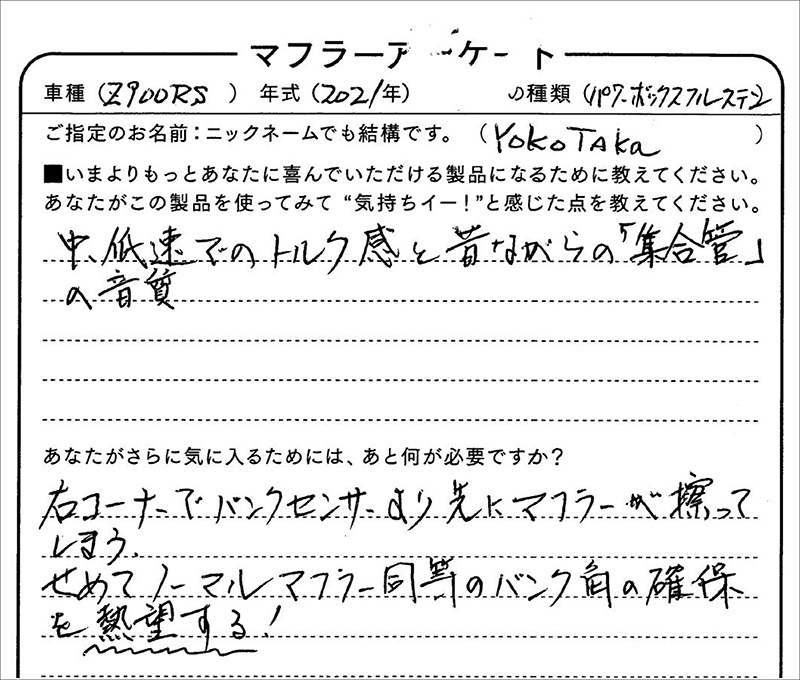 マフラーア ケート
車種（Z900RS ） 年式（2021年） の種類（パワーボックスフルステン
ご指定のお名前：ニックネームでも結構です。（YOKOTAKa ）
■いまよりもっとあなたに喜んでいただける製品になるために教えてください。
あなたがこの製品を使ってみて“気持ちイー！”と感じた点を教えてください。
中、低速でのトルク感と昔ながらの「集合管」
の音質
あなたがさらに気に入るためには、あと何が必要ですか？
右コーナーでバンクセンサーより先にマフラーが擦って
しまう。
せめてノーマルマフラー同等のバンク角の確保
を熱望する！